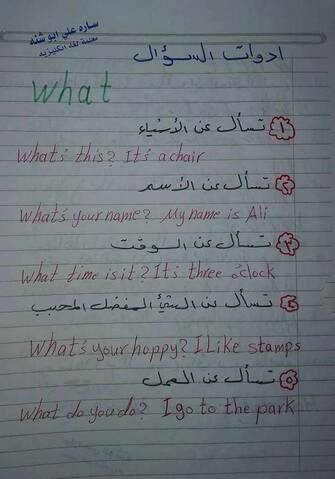 ساره علي ابو شنه
معلمة لغة انكليزيه
ادوات السؤال
what
١ تسأل عن الأشياء
What's this? It's a chair
٢ تسأل عن الأسم
What's your name? My name is Ali
٣ تسأل عن الوقت
What time is it? It's three o'clock
٤ تسأل عن الشيئ المفضل المحبب
What's your hoppy? I Like stamps
٥ تسأل عن العمل
What do you do? I go to the park